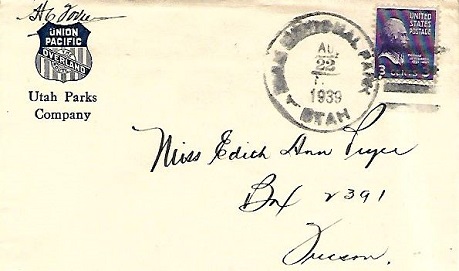 UNION
PACIFIC
OVERLAND
Utah Parks
Company
NATIONAL PARK
AUG
22
1939
UTAH
UNITED
STATES
POSTAGE
3 CENTS 3
Miss Edith Ann Pryer
Box 2391
Tucson.